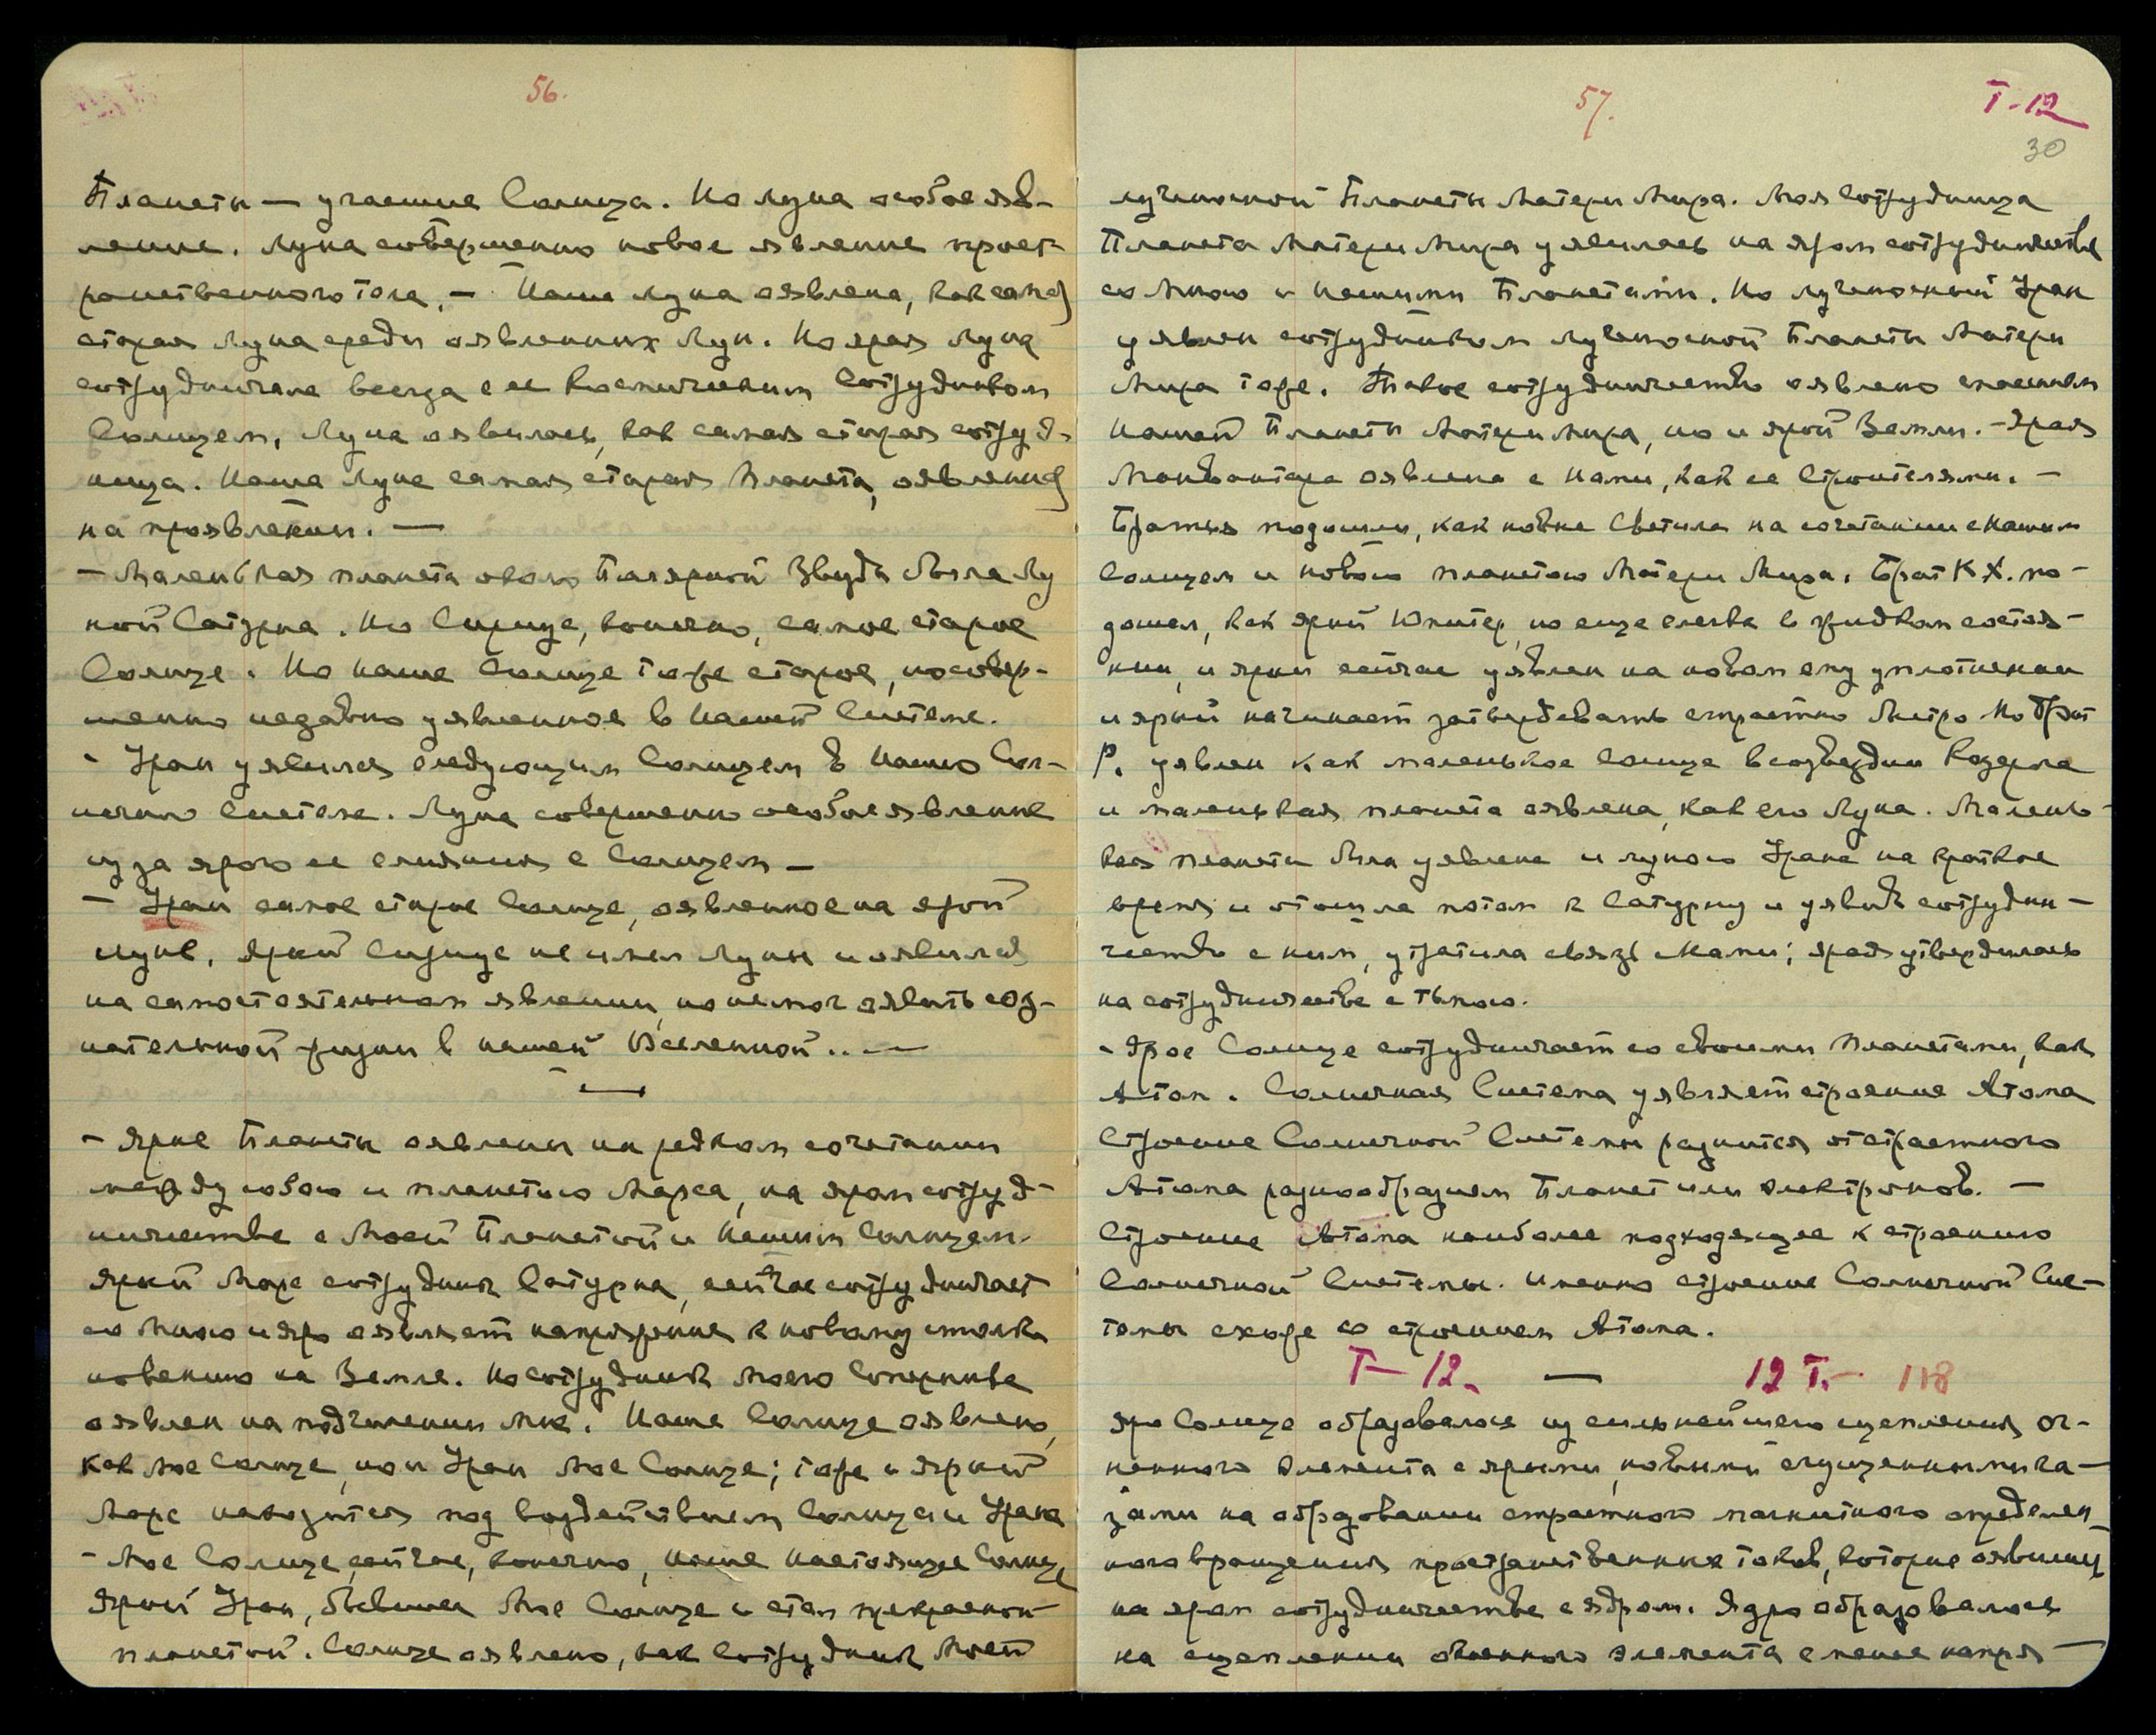 56.
Планеты — участие Солнца. Но луна особое яв-
ление. Луна совершенно новое явление прост-
ранственного тела, — Наша луна оявлена, как самая
старая Луна среди оявленных Лун. Но ярая Луна
сотрудничала всегда с ее Космическим Сотрудником
Солнцем, Луна оявилась, как самая старая сотруд-
ница. Наша Луна самая старая Планета, оявленная
на проявлении. —
— Маленькая планета около Полярной Звезды была Лу
ной Сатурна. Но Сириус, конечно, самое старое
Солнце. Но наше Солнце тоже старое, но совер-
шенно недавно уявленное в нашей Системе.
- Уран уявился следующим Солнцем в нашей Сол-
нечной Системе. Луна совершенно особое явление
из за ярого ее слияния с Солнцем —
— Уран самое старое Солнце, оявленное на ярой
Луне. Яркий Сириус не имел Луны и оявился
на самостоятельном явлении, но не мог оявить соз-
нательной жизни в нашей Вселенной.. —
—
- Ярые Планеты оявлены на редком сочетании
между собою и планетою Марса, на яром сотруд-
ничестве с Моей Планетой и Нашим Солнцем.
Яркий Марс сотрудник Сатурна, сейчас сотрудничает
со Мною и яро оявляет напряжение к новому столк
новению на Земле. Но сотрудник моего Соперника
оявлен на подчинении мне. Наше Солнце оявлено,
как мое Солнце, но и Уран мое Солнце; тоже и Яркий
Марс находится под воздействием Солнца и Урана
- Мое Солнце, сейчас, конечно, наше Настоящее Солнце
Яркий Уран, бывшее Мое Солнце и стал прекрасной
планетой. Солнце оявлено, как Сотрудник Моей
57.
Т-12
30
лученосной Планеты Матери Мира. Моя Сотрудница
Планета Матери Мира уявилась на яром сотрудничестве
со Мною и Нашими Планетами. Но лученосный Уран
уявлен сотрудником лученосной Планеты Матери
Мира тоже. Такое сотрудничество оявлено спасением
нашей Планеты Матери Мира, но и ярой Земли. - Ярая
Манвантара оявлена с Нами, как ее Строителями. —
Братья подошли, как новые Светила на сочетании с Нашим
Солнцем и новою планетою Матери Мира. Брат К.Х. по-
дошел, как яркий Юпитер, но еще слегка в жидком состоя-
нии, и яркий сейчас уявлен на новом ему уплотнении
и яркий начинает затвердевать страстно быстро. Но Брат
Р. уявлен как маленькое солнце в созвездии Козерога
и маленькая планета оявлена, как его Луна. Малень-
кая планета была уявлена и луною Урана на краткое
время и отошла потом к Сатурну и уявив сотрудни-
чество с ним, утратила связь с Нами; ярая утвердилась
на сотрудничестве с тьмою.
- Ярое Солнце сотрудничает со своими планетами, как
Атом. Солнечная Система уявляет строение Атома
Строение Солнечной Системы разнится от страстного
Атома разнообразием Планет или электронов. —
Строение Атома наиболее подходящее к строению
Солнечной Системы. Именно строение Солнечной Сис-
темы схоже со строением Атома.
Т-12. — 12 Т.- 118
Яро Солнце образовалось из сильнейшего сцепления ог-
ненного элемента с ярыми, новыми сгущенными га-
зами на образовании страстного магнитного определен
ного вращения пространственных токов, которые оявлены
на яром сотрудничестве с ядром. Ядро образовалось
на сцеплении огненного элемента с менее напря-